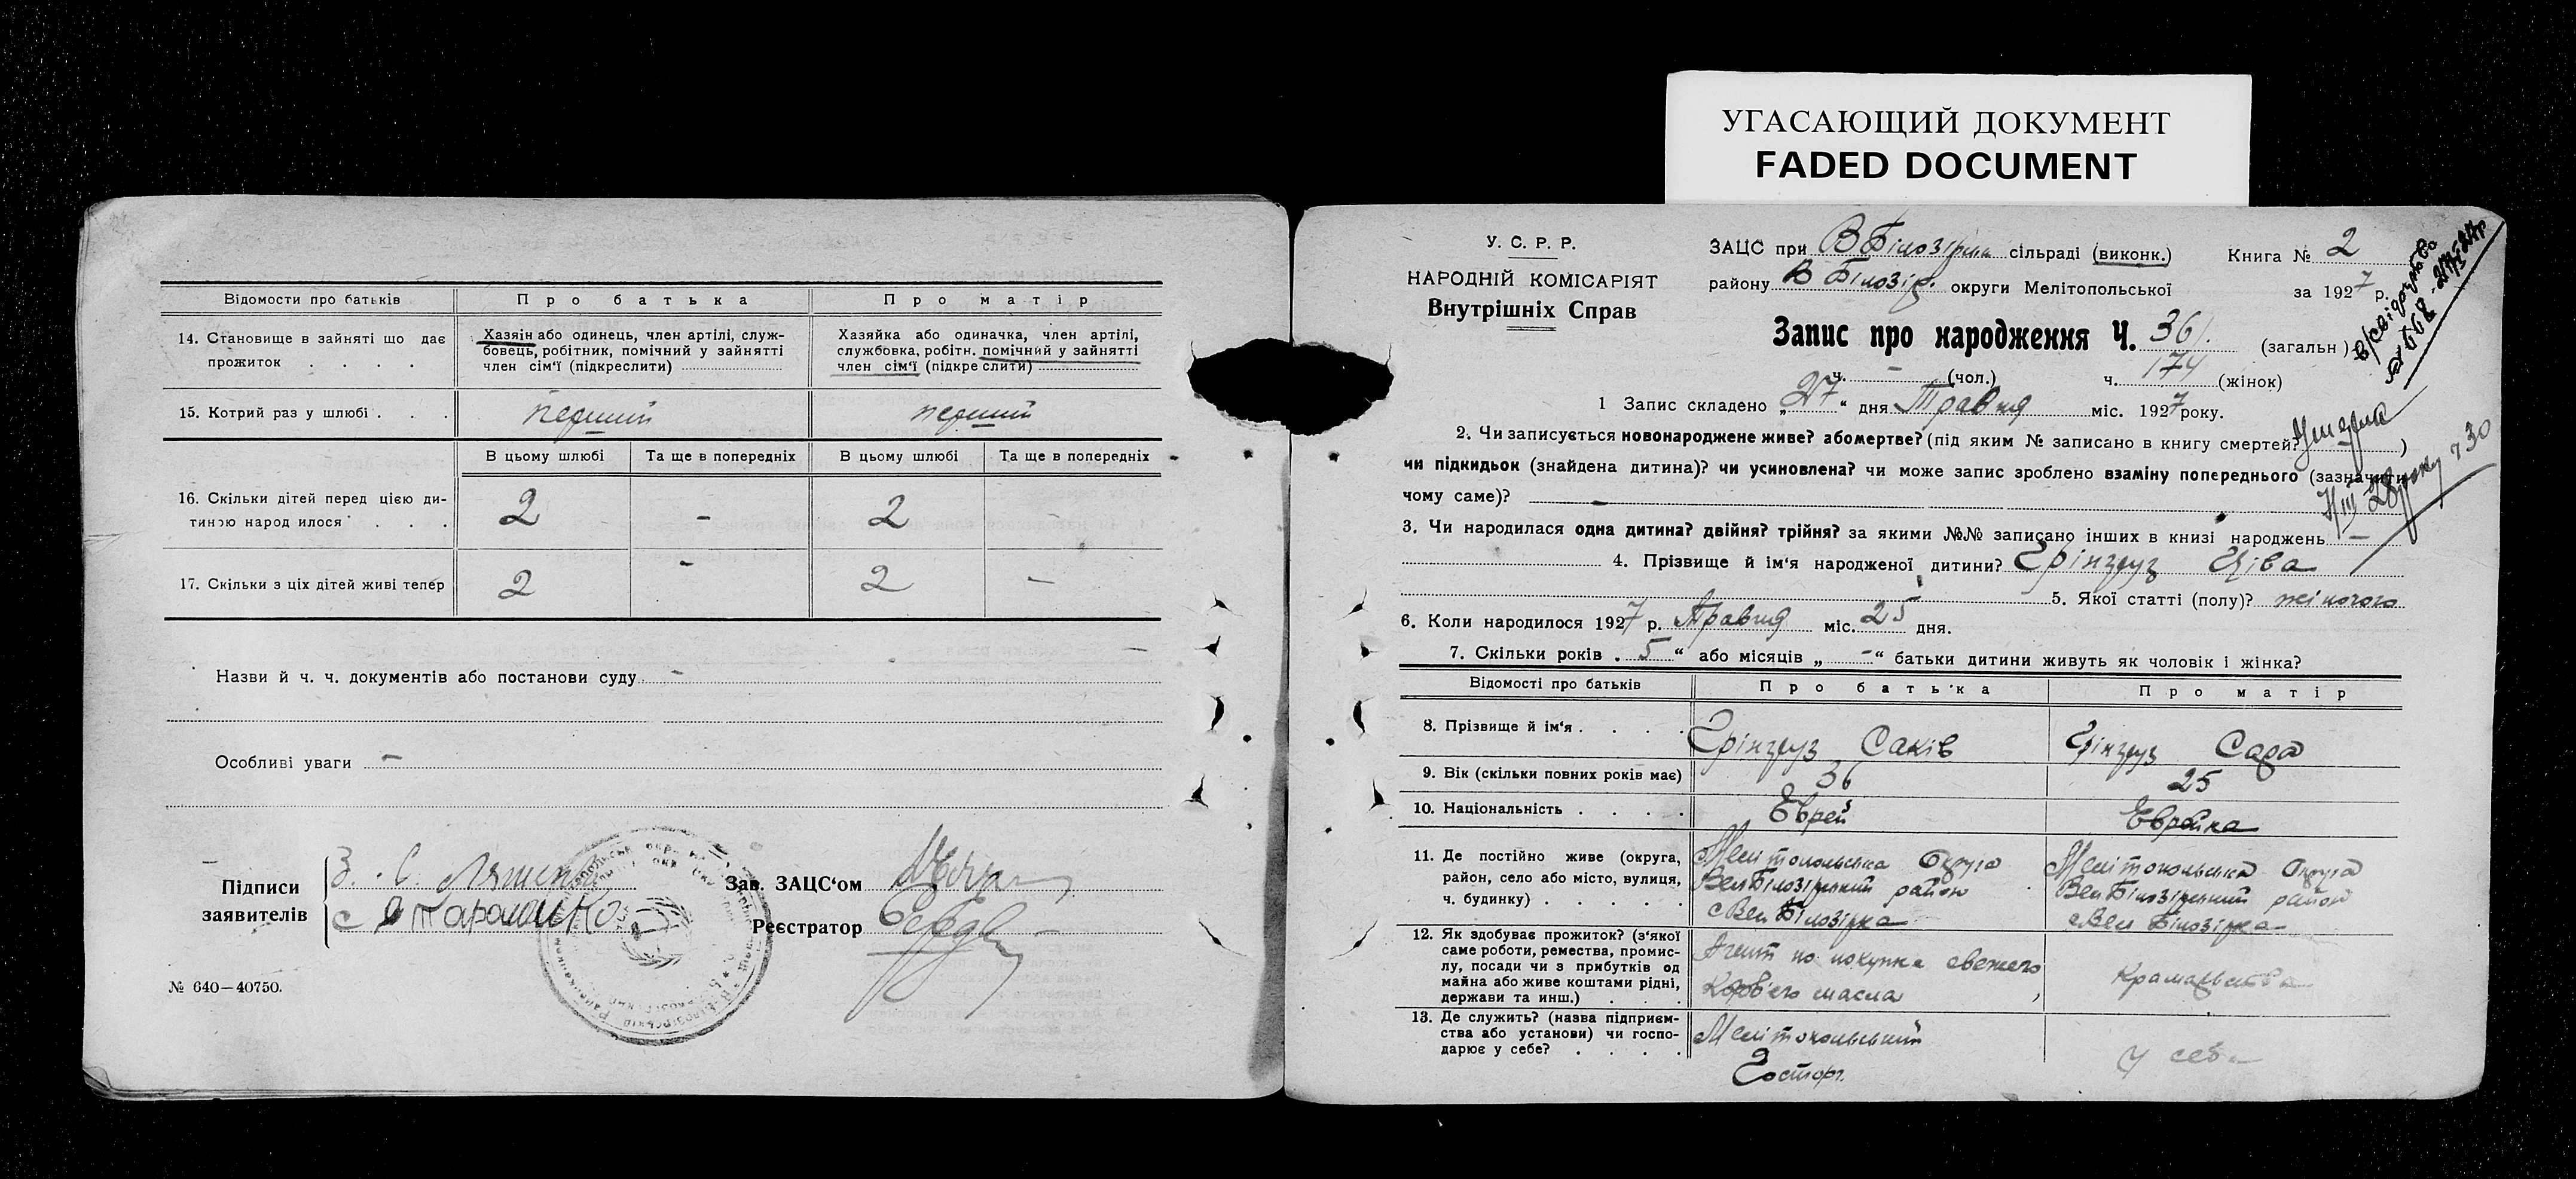 УГАСАЮЩИЙ ДОКУМЕНТ
FADED DOCUMENT
Відомости про батьків
Про батька
Про матір
14. Становище в зайняті що дає прожиток . . . .
Хазяїн або одинець, член артілі, служ-
бовець, робітник, помічний у зайнятті
член сім'ї (підкреслити)
Хазяйка або одиначка, член артілі,
службовка, робітн. помічний у зайнятті
член сім'ї (підкреслити)
15. Котрий раз у шлюбі . . .
перший
перший
В цьому шлюбі
Та ще в попередніх
В цьому шлюбі
Та ще в попередніх
16. Скільки дітей перед цією ди-
тиною народилося . . .
2
-
2
-
17. Скільки з ціх дітей живі тепер
2
-
2
-
Назви й ч. ч. документів або постанови суду -
Особливі уваги -
Підписи
заявителів
З. С.
Зав. ЗАЦС'ом
Реєстратор
№ 640—40750.
У. С. Р. Р.
НАРОДНІЙ КОМІСАРІЯТ
Внутрішніх Справ
ЗАЦС при В Білозірки сільраді (виконк.)
Книга № 2
району В Білозір. округи Мелітопольської
за 1927 р.
Запис про народження Ч. 361. (загальн)
ч. - (чол.) ч. 174 (жінок)
1 Запис складено „27“ дня Травня міс. 1927 року.
2. Чи записується новонароджене живе? або мертве? (під яким № записано в книгу смертей? )
чи підкидьок (знайдена дитина)? чи усиновлена? чи може запис зроблено взаміну попереднього (зазначити
чому саме)? -
Умерла
3. Чи народилася одна дитина? двійня? трійня? за якими №№ записано інших в книзі народжень -
4. Прізвище й ім'я народженої дитини? Грінгруз Ціва
5. Якої статті (полу)? жіночого
6. Коли народилося 1927 р. Травня міс. 25 дня.
7. Скільки років „5“ або місяців „-“ батьки дитини живуть як чоловік і жінка?
Відомості про батьків
Про батька
Про матір
8. Прізвище й ім'я . . . .
Грінгруз Саків
Грінгруз Сара
9. Вік (скільки повних років має)
36
25
10. Національність . . . .
Еврей
Еврейка
11. Де постійно живе (округа,
район, село або місто, вулиця,
ч. будинку) . . . . .
Мелітопольська Округа
Вел Білозірський район
с Вел Білозірка
Мелітопольська Округа
Вел Білозірський район
с Вел Білозірка
12. Як здобуває прожиток? (з'якої
саме роботи, ремества, промис-
лу, посади чи з прибутків од
майна або живе коштами рідні,
держави та инш.) . . .
Агент по покупке свежего
Коров'его масла
Крамарьство
13. Де служить? (назва підприєм-
ства або установи) чи госпо-
дарює у себе? . . . .
Мелітопольський
Госторг.
У себе